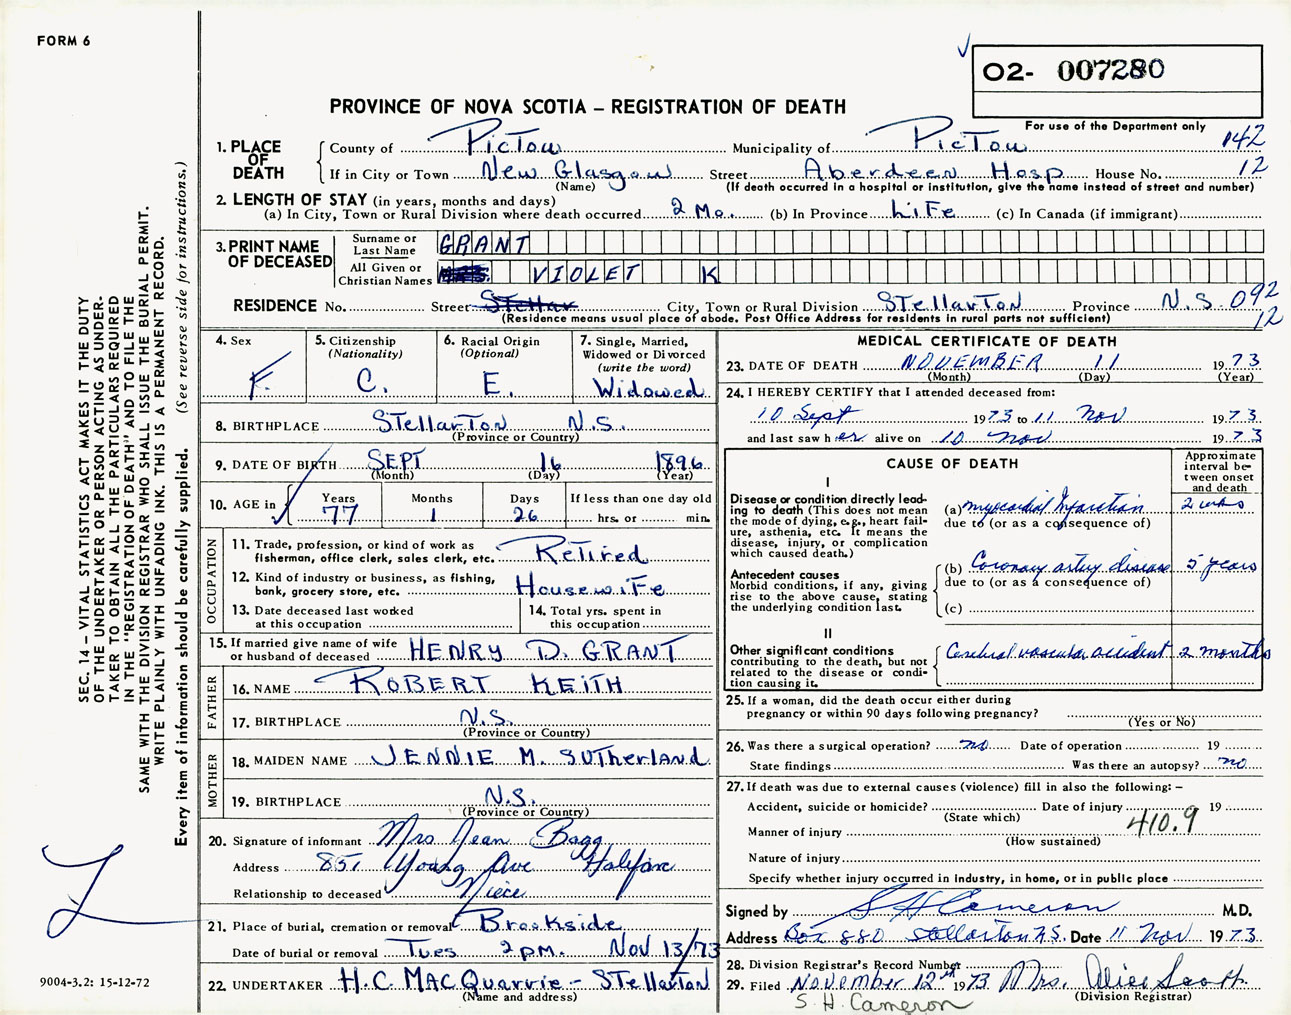 FORM 6
02- 007280
PROVINCE OF NOVA SCOTIA – REGISTRATION OF DEATH
For use of the Department only
1. PLACE OF DEATH
County of PicTou Municipality of PicTou 142
If in City or Town New Glasgow Street Aberdeen Hosp House No. 12
(Name) (If death occurred in a hospital or institution, give the name instead of street and number)
2. LENGTH OF STAY (in years, months and days)
(a) In City, Town or Rural Division where death occurred 2 Mo. (b) In Province LiFe (c) In Canada (if immigrant)
3. PRINT NAME OF DECEASED
Surname or Last Name GRANT
All Given or Christian Names VIOLET K
RESIDENCE No. Street Stellar City, Town or Rural Division STellarTon Province N.S. 092
(Residence means usual place of abode. Post Office Address for residents in rural parts not sufficient) 12
4. Sex F.
5. Citizenship (Nationality) C.
6. Racial Origin (Optional) E.
7. Single, Married, Widowed or Divorced (write the word) Widowed
8. BIRTHPLACE STellarTon N.S.
(Province or Country)
9. DATE OF BIRTH SEPT 16 1896
(Month) (Day) (Year)
10. AGE in Years 77 Months 1 Days 26 If less than one day old hrs. or min.
OCCUPATION
11. Trade, profession, or kind of work as fisherman, office clerk, sales clerk, etc. Retired
12. Kind of industry or business, as fishing, bank, grocery store, etc. HousewiFe
13. Date deceased last worked at this occupation
14. Total yrs. spent in this occupation
15. If married give name of wife or husband of deceased HENRY D. GRANT
FATHER
16. NAME ROBERT KEITH
17. BIRTHPLACE N.S.
(Province or Country)
MOTHER
18. MAIDEN NAME JENNIE M. SUTherLAND
19. BIRTHPLACE N.S.
(Province or Country)
20. Signature of informant Mrs Jean Bagg
Address 857 Young Ave Halifax
Relationship to deceased Niece
21. Place of burial, cremation or removal Brookside
Date of burial or removal Tues 2 pm. Nov 13/73
22. UNDERTAKER H.C. MACQuarrie – STellarTon
(Name and address)
MEDICAL CERTIFICATE OF DEATH
23. DATE OF DEATH NOVEMBER 11 1973
(Month) (Day) (Year)
24. I HEREBY CERTIFY that I attended deceased from:
10 Sept 1973 to 11 Nov 1973
and last saw her alive on 10 Nov 1973
CAUSE OF DEATH
Approximate interval between onset and death
I
Disease or condition directly leading to death (This does not mean the mode of dying, e.g., heart failure, asthenia, etc. It means the disease, injury, or complication which caused death.)
(a) myocardial Infarction 2 wks
due to (or as a consequence of)
Antecedent causes
Morbid conditions, if any, giving rise to the above cause, stating the underlying condition last.
(b) Coronary artery disease 5 years
due to (or as a consequence of)
(c)
II
Other significant conditions contributing to the death, but not related to the disease or condition causing it.
Cerebral vascular accident 2 months
25. If a woman, did the death occur either during pregnancy or within 90 days following pregnancy?
(Yes or No)
26. Was there a surgical operation? no Date of operation 19
State findings Was there an autopsy? no
27. If death was due to external causes (violence) fill in also the following: –
Accident, suicide or homicide? Date of injury 19
(State which)
Manner of injury 410.9
(How sustained)
Nature of injury
Specify whether injury occurred in industry, in home, or in public place
Signed by S H Cameron M.D.
Address Box 880 Stellarton N.S. Date 11 Nov 1973
28. Division Registrar's Record Number
29. Filed November 12th 1973 Mrs. Alice Scott
(Division Registrar)
S. H. Cameron
SEC. 14 – VITAL STATISTICS ACT MAKES IT THE DUTY
OF THE UNDERTAKER OR PERSON ACTING AS UNDERTAKER
TO OBTAIN ALL THE PARTICULARS REQUIRED
IN THE "REGISTRATION OF DEATH" AND TO FILE THE
SAME WITH THE DIVISION REGISTRAR WHO SHALL ISSUE THE BURIAL PERMIT.
WRITE PLAINLY WITH UNFADING INK. THIS IS A PERMANENT RECORD.
Every item of information should be carefully supplied. (See reverse side for instructions.)
9004-3.2: 15-12-72